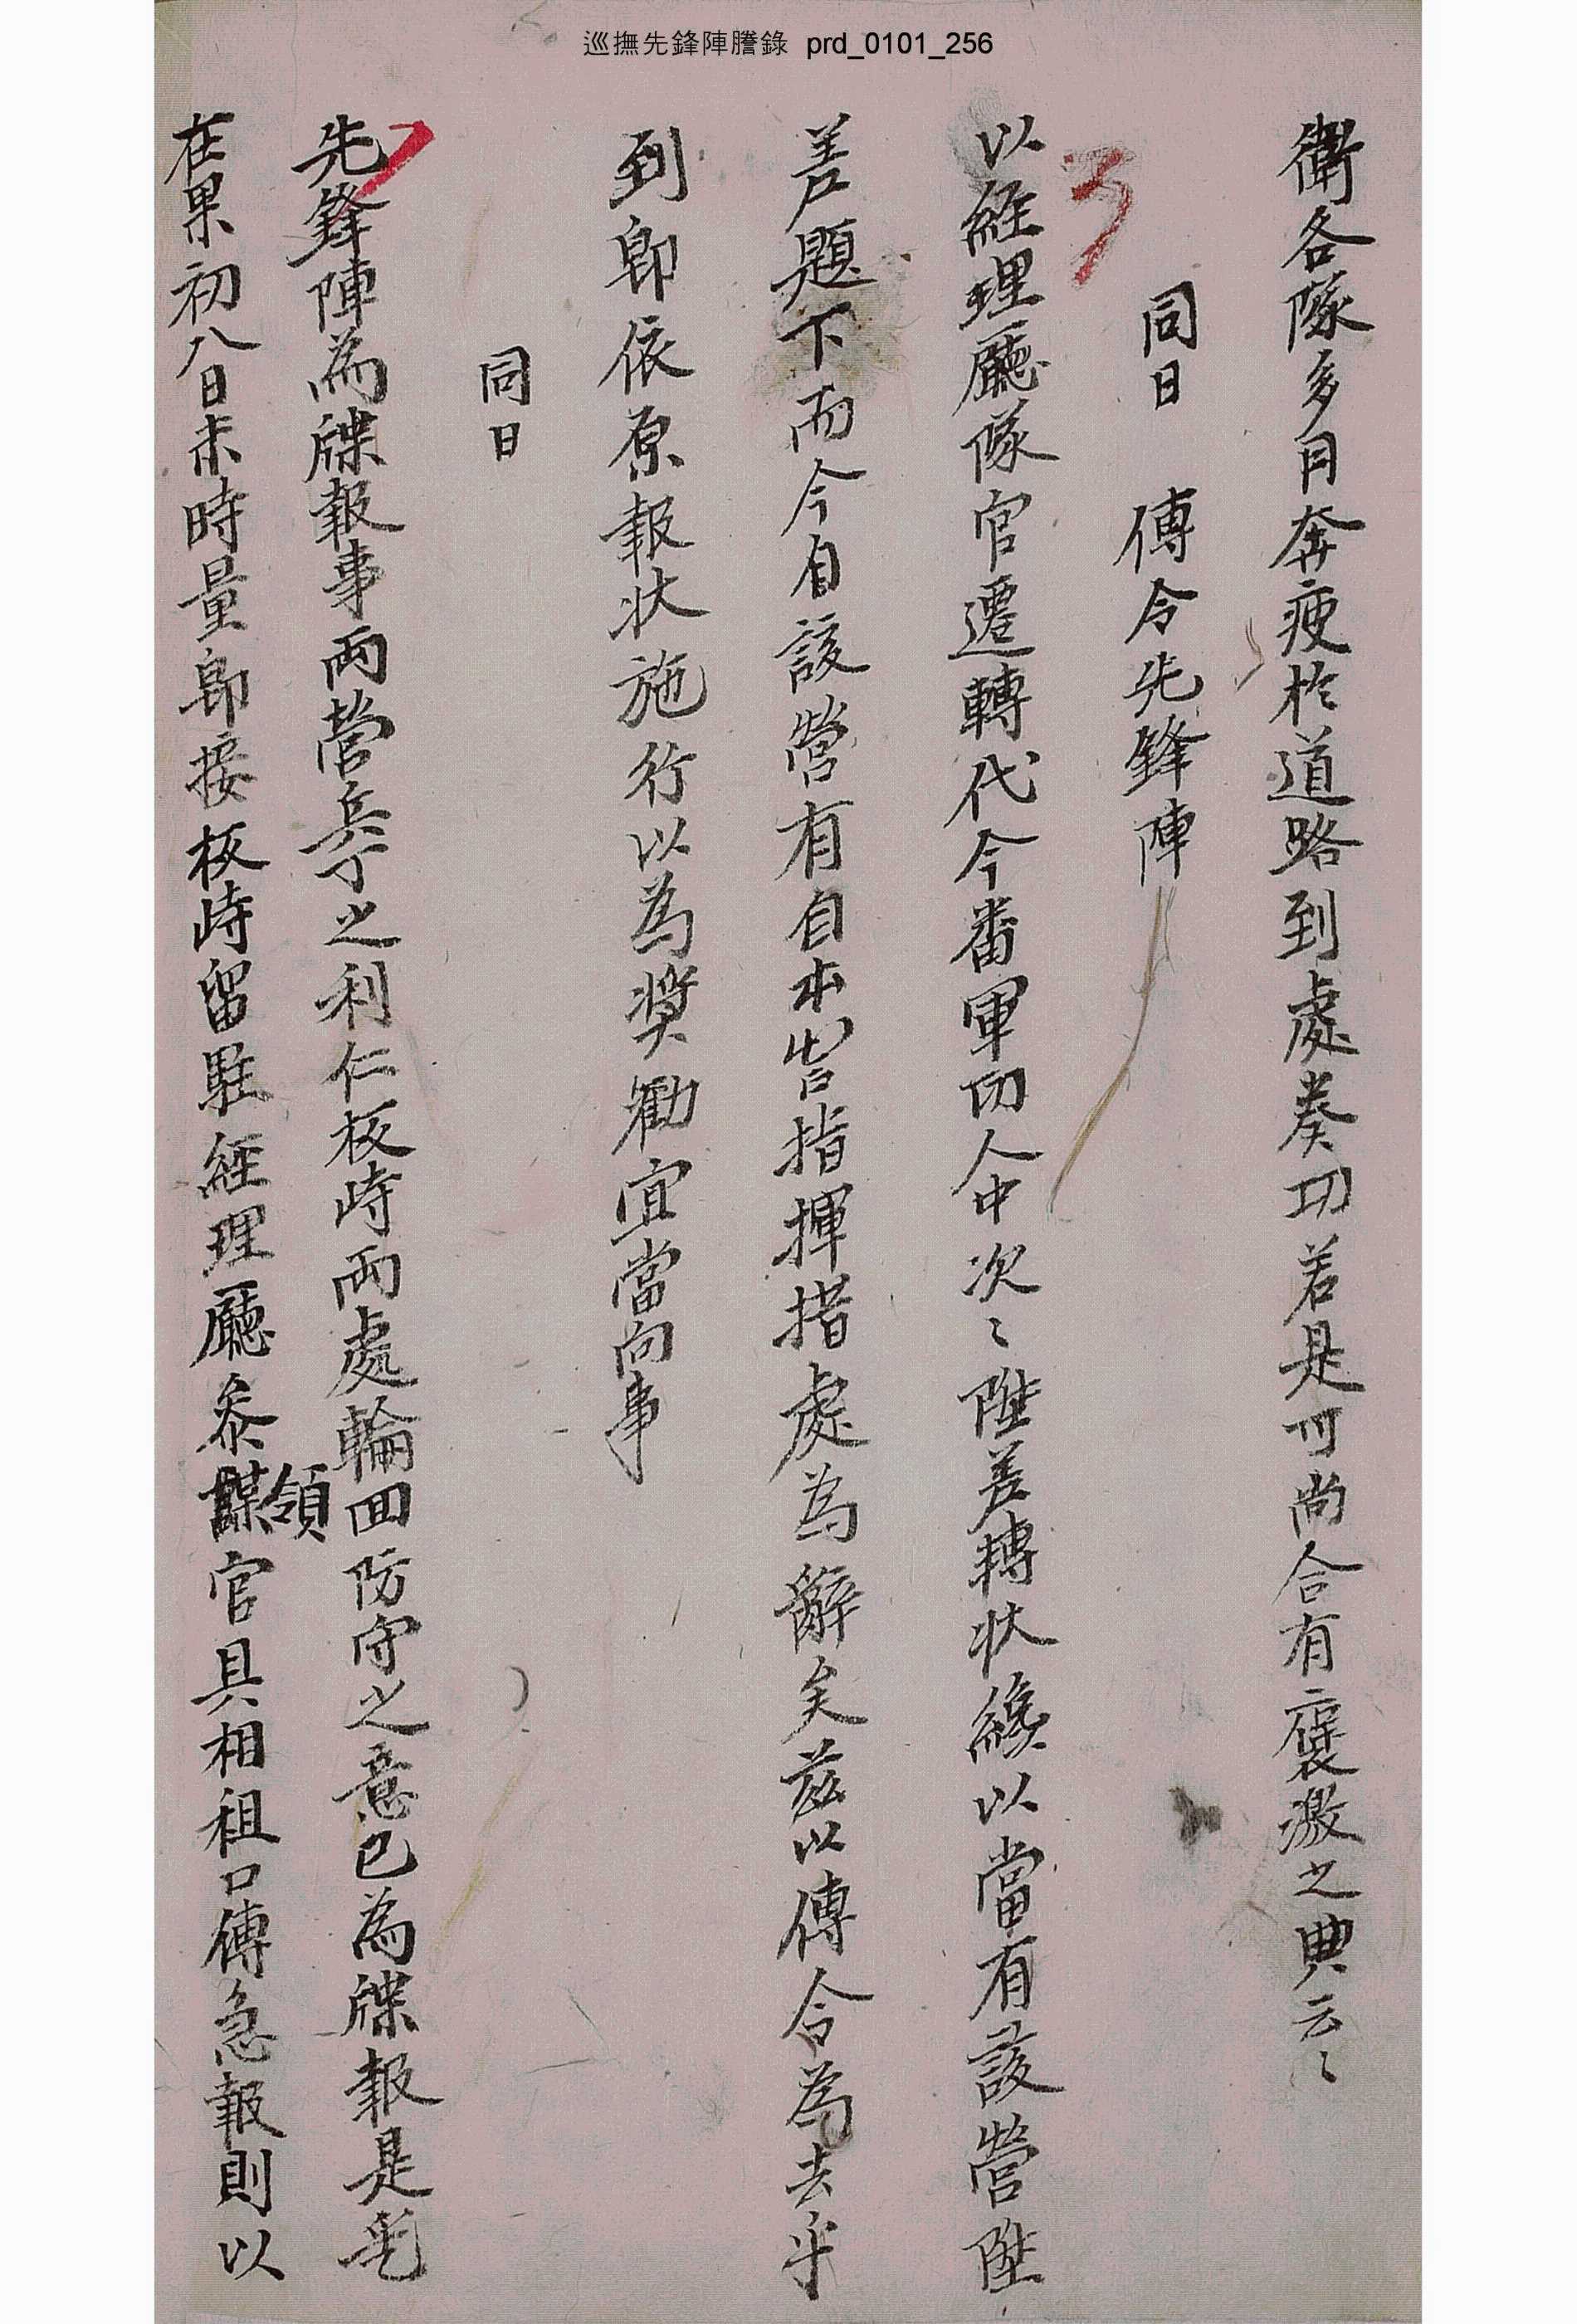 巡撫先鋒陣謄錄 prd_0101_256
衛各隊多月奔疲於道路到處奏功若是可尚合有褒激之典云〻
同日 傳令先鋒陣
以經理廳隊官遷轉代今番軍功人中次〻陞差轉狀纔以當有該營陞
差題下而今自該營有自本營指揮措處爲辭矣玆以傳令爲去乎
到卽依原報狀施行以爲奬勸宜當向事
同日
先鋒陣爲牒報事兩營兵丁之利仁板峙兩處輪回防守之意已爲牒報是
在果初八日未時量卽接板峙留駐經理廳參謀領官具相祖口傳急報則以